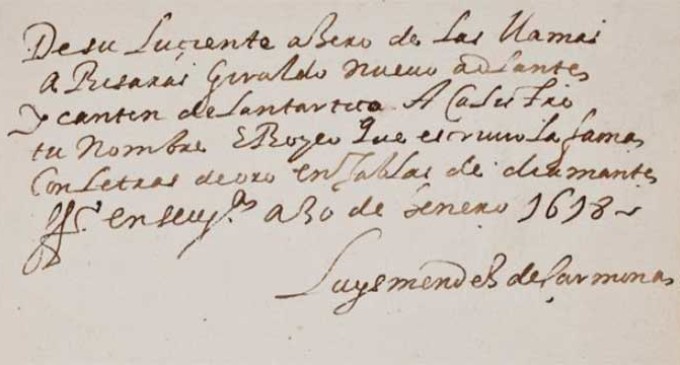 De su Luçiente aBeso de las llamas
A Pisaras Giraldo nueuo adlante
Y canten del antartico A Calistro
tu nombre ERoyco que escriuio la fama
Con Letras de oro en Tablas de diamante
ff.ª en seuy.ª a 30 de henero 1618
Luys mendez de Carmona